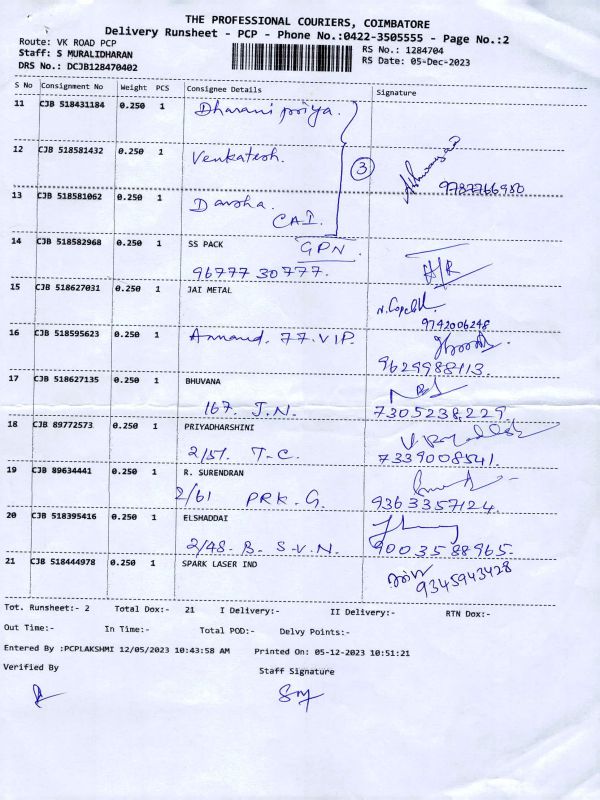 THE PROFESSIONAL COURIERS, COIMBATORE
Delivery Runsheet - PCP - Phone No.:0422-3505555 - Page No.:2
Route: VK ROAD PCP RS No.: 1284704
Staff: S MURALIDHARAN RS Date: 05-Dec-2023
DRS No.: DCJB128470402
S No Consignment No Weight PCS Consignee Details Signature
11 CJB 518431184 0.250 1 Dharani priya.
12 CJB 518581432 0.250 1 Venkatesh. 3
9787766980
13 CJB 518581062 0.250 1 Darsha.
CAI.
14 CJB 518582968 0.250 1 SS PACK GPN
96777 30777.
15 CJB 518627031 0.250 1 JAI METAL
9742006248
16 CJB 518595623 0.250 1 Annand. 77. VIP.
9629988113.
17 CJB 518627135 0.250 1 BHUVANA
167. J.N. 7305238229.
18 CJB 89772573 0.250 1 PRIYADHARSHINI
2/51. T-C. 7339008541.
19 CJB 89634441 0.250 1 R. SURENDRAN
2/61 PRK. G. 9363357124.
20 CJB 518395416 0.250 1 ELSHADDAI
2/48- B- S-V.N. 9003588965-
21 CJB 518444978 0.250 1 SPARK LASER IND
9345943428
Tot. Runsheet:- 2 Total Dox:- 21 I Delivery:- II Delivery:- RTN Dox:-
Out Time:- In Time:- Total POD:- Delvy Points:-
Entered By :PCPLAKSHMI 12/05/2023 10:43:58 AM Printed On: 05-12-2023 10:51:21
Verified By Staff Signature